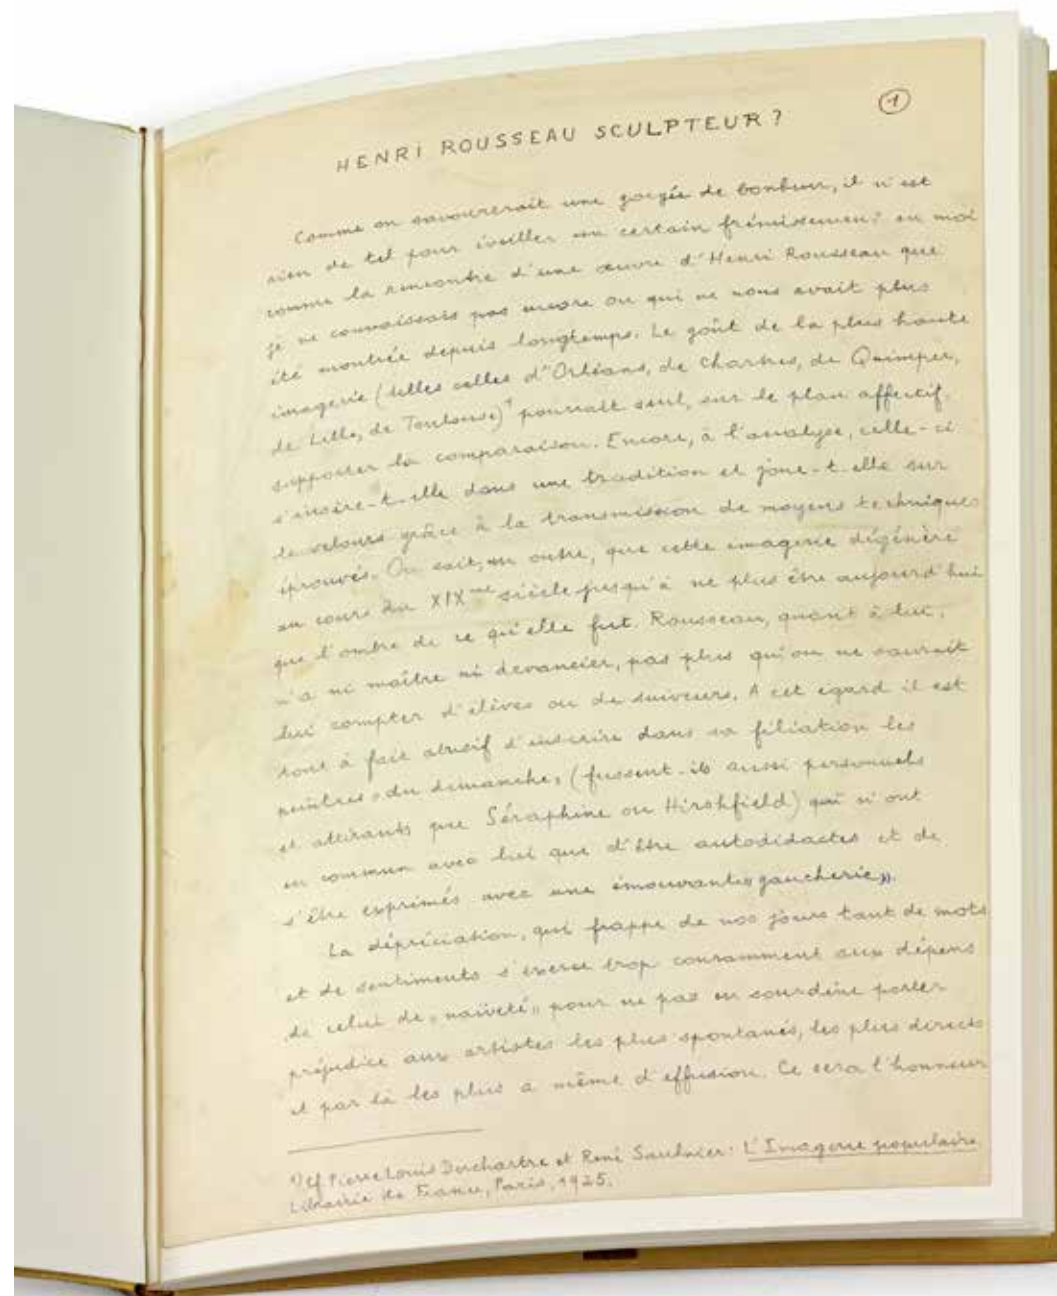 1
HENRI ROUSSEAU SCULPTEUR?
Comme on savourerait une gorgée de bonheur, il n'est
rien de tel pour éveiller un certain frémissement en moi
comme la rencontre d'une œuvre d'Henri Rousseau que
je ne connaissais pas encore ou qui ne nous avait plus
été montrée depuis longtemps. Le goût de la plus haute
imagerie (telles celles d'Orléans, de Chartres, de Quimper,
de Lille, de Toulouse)¹ pourrait seul, sur le plan affectif,
supporter la comparaison. Encore, à l'analyse, celle-ci
s'insère-t-elle dans une tradition et joue-t-elle sur
le velours grâce à la transmission de moyens techniques
éprouvés. On sait, en outre, que cette imagerie dégénère
au cours du XIXme siècle jusqu'à ne plus être aujourd'hui
que l'ombre de ce qu'elle fut. Rousseau, quant à lui,
n'a ni maître ni devancier, pas plus qu'on ne saurait
lui compter d'élèves ou de suiveurs. A cet égard il est
tout à fait abusif d'inscrire dans sa filiation les
peintres "du dimanche" (fussent-ils aussi personnels
et attirants que Séraphine ou Hirshfield) qui n'ont
en commun avec lui que d'être autodidactes et de
s'être exprimés avec une émouvante «gaucherie».
La dépréciation, qui frappe de nos jours tant de mots
et de sentiments s'exerce trop couramment aux dépens
de celui de "naïveté" pour ne pas en sourdine porter
préjudice aux artistes les plus spontanés, les plus directs
et par là les plus a même d'effusion. Ce sera l'honneur
1) Cf Pierre Louis Duchartre et René Saulnier: L'Imagerie populaire,
Librairie de France, Paris, 1925.